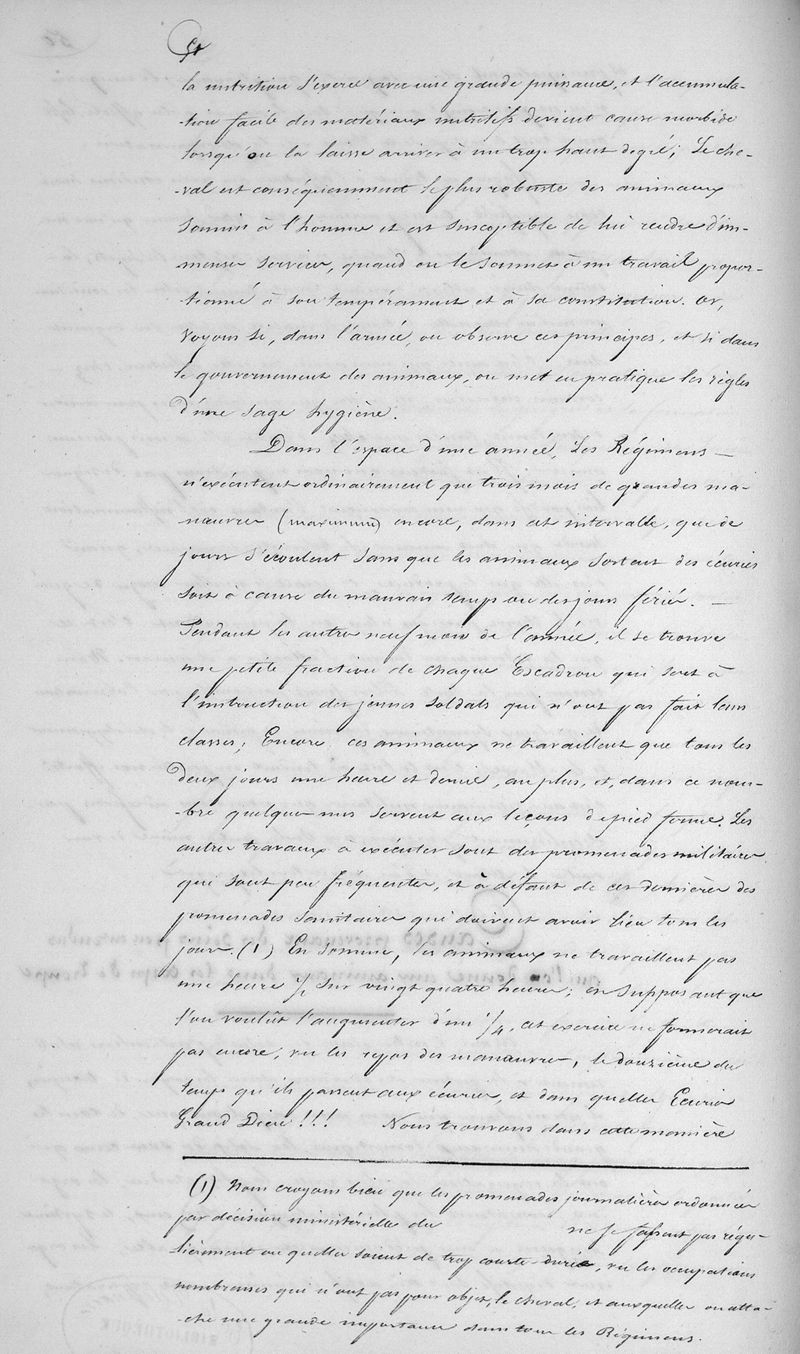 la nutrition s'exerce avec une grande puissance, et l'accumula-
-tion facile des matériaux nutritifs devient cause morbide
lorsqu'on la laisse arriver à un trop haut degré; Le che-
-val est conséquemment le plus robuste des animaux
soumis à l'homme et est susceptible de lui rendre d'im-
-menses services, quand on le soumet à un travail propor-
-tionné à son tempérament et à sa constitution. Or,
voyons si, dans l'armée, on observe ces principes, et si dans
le gouvernement des animaux, on met en pratique les règles
d'une sage hygiène.
Dans l'espace d'une année, Les Régimens —
n'exécutent ordinairement que trois mois de grandes ma-
-nœuvres (maximum) encore, dans cet intervalle, que de
jours s'écoulent sans que les animaux sortent des écuries
soit à cause du mauvais temps ou des jours fériés. —
Pendant les autres neuf mois de l'année, il se trouve
une petite fraction de chaque Escadron qui sert à
l'instruction des jeunes soldats qui n'ont pas fait leurs
classes; Encore ces animaux ne travaillent que tous les
deux jours une heure et demie, au plus, et, dans ce nom-
-bre quelques-uns servent aux leçons de pied ferme. Les
autres travaux à exécuter sont des promenades militaires
qui sont peu fréquentes, et à défaut de ces dernières des
promenades sanitaires qui doivent avoir lieu tous les
jours. (1) En somme, les animaux ne travaillent pas
une heure ½ sur vingt quatre heures; en supposant que
l'on voulût l'augmenter d'un ¼, cet exercice ne formerait
pas encore, vu les repos des manœuvres, le douzième du
temps qu'ils passent aux écuries, et dans quelles Ecuries
Grand Dieu!!! Nous trouvons dans cette manière
(1) Nous croyons bien que les promenades journalières ordonnées
par décision ministérielle du ne se fassent pas régu-
-lièrement ou quelles soient de trop courte durée, vu les occupations
nombreuses qui n'ont pas pour objet, le cheval, et auxquelles on atta-
-che une grande importance dans tous les Régimens.